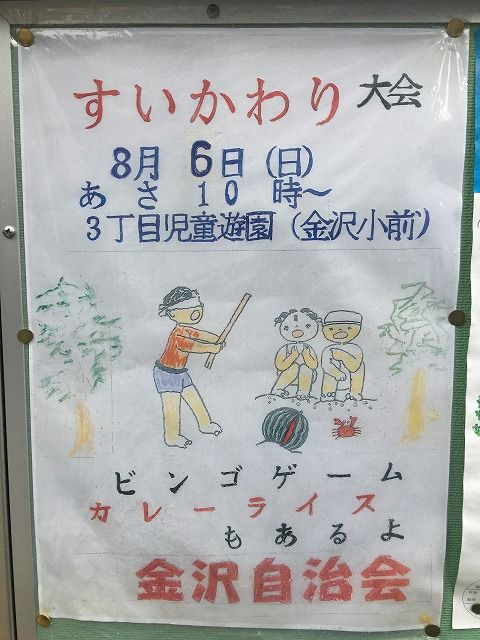 すいかわり大会
8月 6日(日)
あさ10時~
3丁目児童遊園(金沢小前)
ビンゴゲーム
カレーライス
もあるよ
金沢自治会